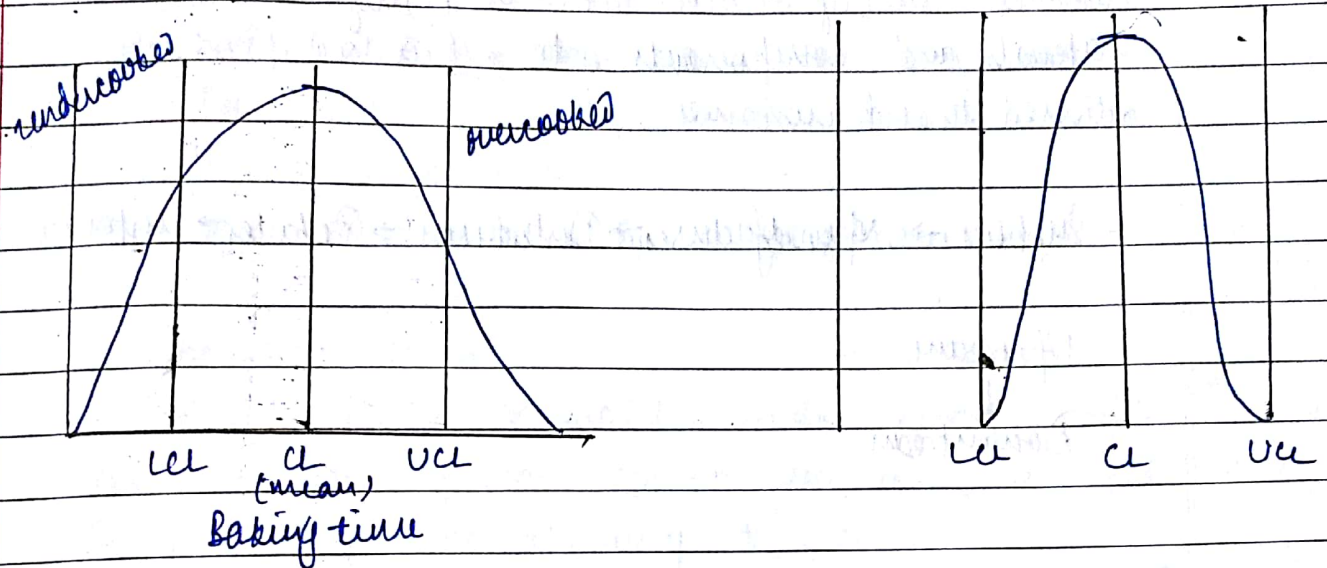 undercooked
overcooked
LCL CL UCL
(mean)
Baking time
LCL CL UCL